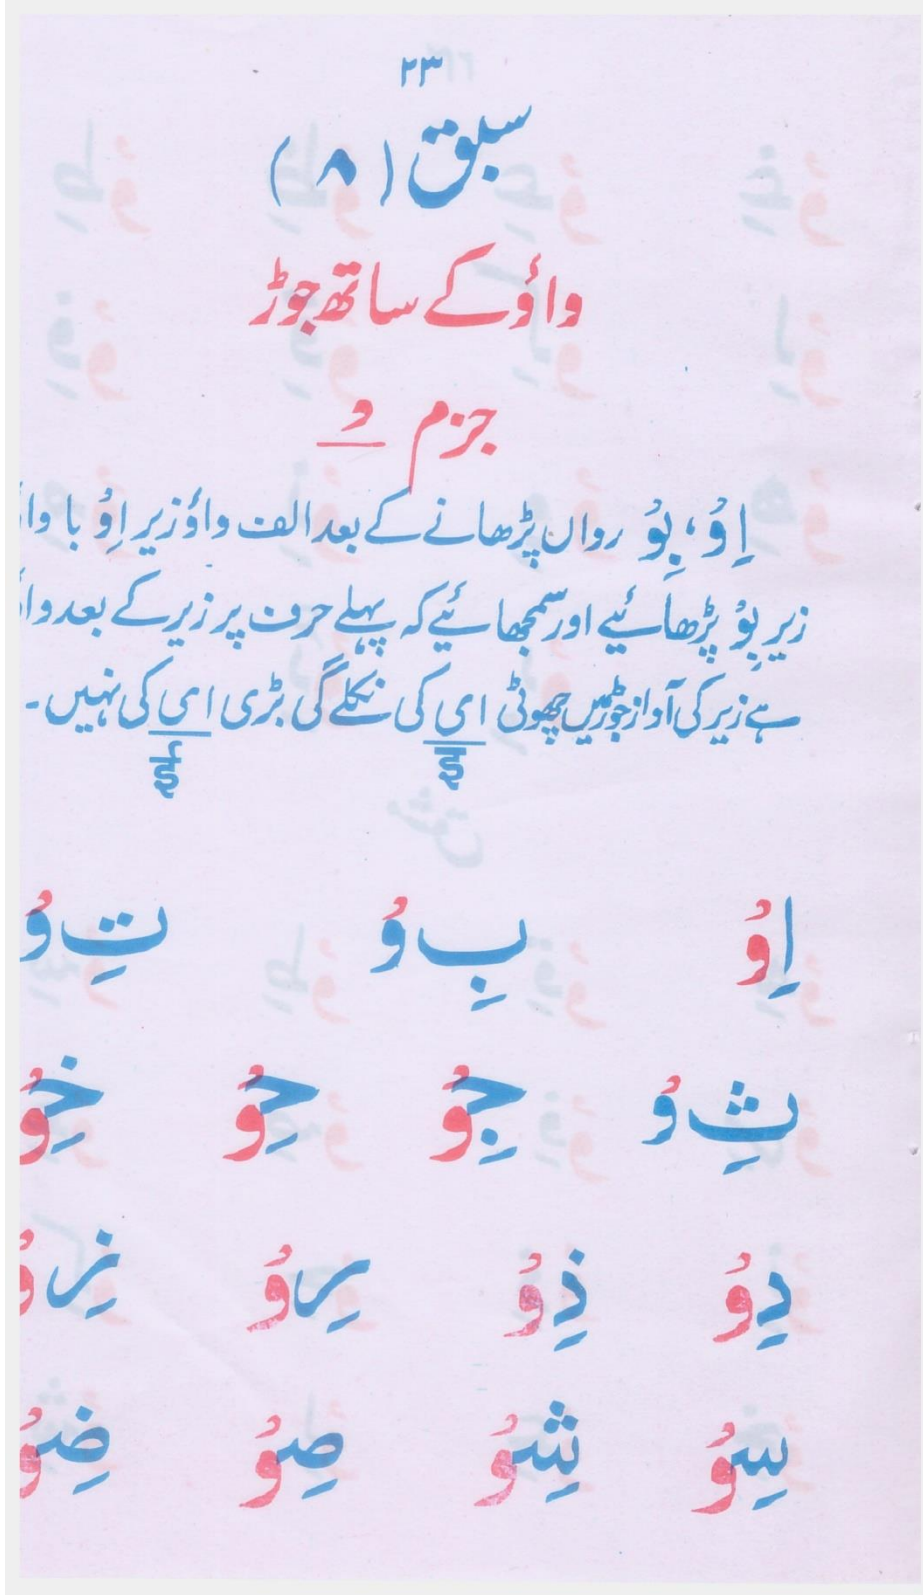 ۲۳
سبق (۸)
واؤ کے ساتھ جوڑ
جزم  ْ
اِوْ، بِوْ رواں پڑھانے کے بعد الف واؤ زیر اِوْ با وا
زیر بِوْ پڑھائیے اور سمجھائیے کہ پہلے حرف پر زیر کے بعد وا
ہے زیر کی آواز جوڑ میں چھوٹی ای کی نکلے گی بڑی ای کی نہیں۔
इ ई
اِوْ بِ وْ تِ وْ
ثِ وْ جِوْ حِوْ خِوْ
دِوْ ذِوْ رِوْ زِوْ
سِوْ شِوْ صِوْ ضِوْ